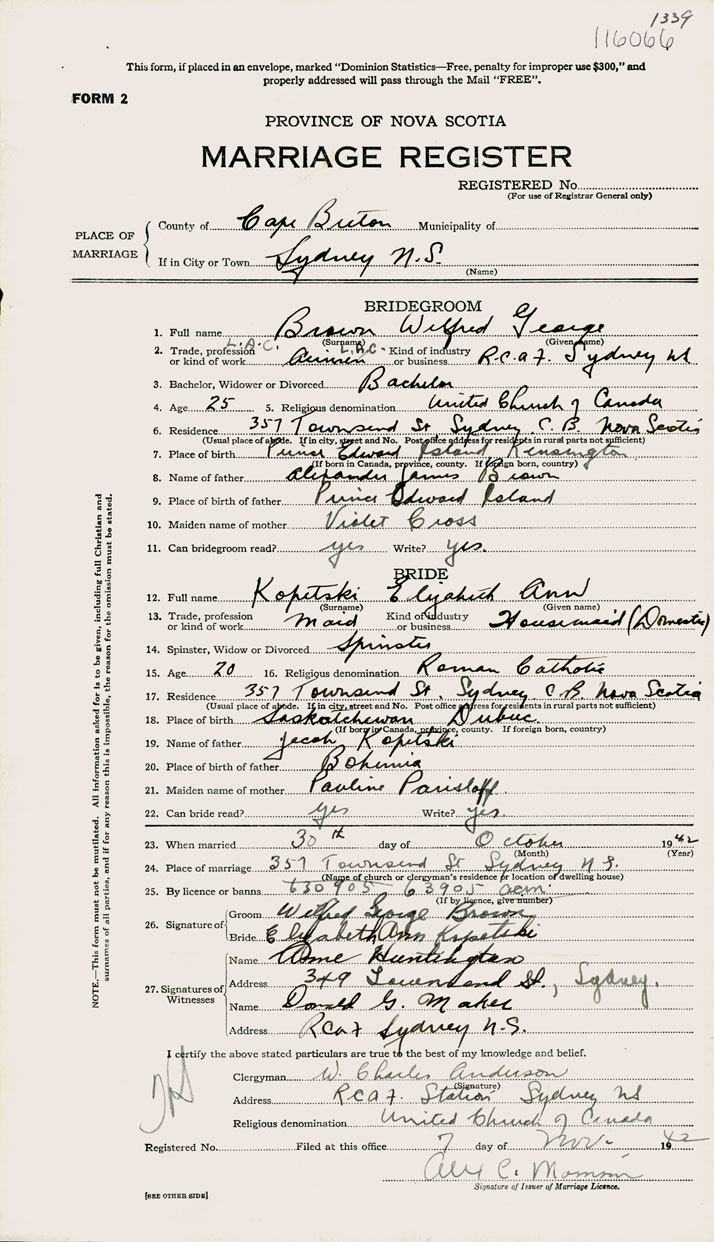 1339
116066
This form, if placed in an envelope, marked "Dominion Statistics—Free, penalty for improper use $300," and
properly addressed will pass through the Mail "FREE".
FORM 2
PROVINCE OF NOVA SCOTIA
MARRIAGE REGISTER
REGISTERED No.
(For use of Registrar General only)
PLACE OF MARRIAGE
County of Cape Breton Municipality of
If in City or Town Sydney N.S.
(Name)
BRIDEGROOM
1. Full name Brown Wilfred George
(Surname) (Given name)
L.A.C. L.A.C.
2. Trade, profession or kind of work Airman Kind of industry or business R.C.A.F. Sydney NS
3. Bachelor, Widower or Divorced Bachelor
4. Age 25 5. Religious denomination United Church of Canada
6. Residence 357 Townsend St Sydney C.B. Nova Scotia
(Usual place of abode. If in city, street and No. Post office address for residents in rural parts not sufficient)
7. Place of birth Prince Edward Island Kensington
(If born in Canada, province, county. If foreign born, country)
8. Name of father Alexander James Brown
9. Place of birth of father Prince Edward Island
10. Maiden name of mother Violet Cross
11. Can bridegroom read? yes Write? yes.
BRIDE
12. Full name Kopetski Elizabeth Ann
(Surname) (Given name)
13. Trade, profession or kind of work Maid Kind of industry or business Housemaid (Domestic)
14. Spinster, Widow or Divorced Spinster
15. Age 20 16. Religious denomination Roman Catholic
17. Residence 357 Townsend St, Sydney C.B Nova Scotia
(Usual place of abode. If in city, street and No. Post office address for residents in rural parts not sufficient)
18. Place of birth Saskatchewan Dubuc
(If born in Canada, province, county. If foreign born, country)
19. Name of father Jacob Kopetski
20. Place of birth of father Bohemia
21. Maiden name of mother Pauline Parisloff
22. Can bride read? yes Write? yes.
23. When married 30th day of October 1942
(Month) (Year)
24. Place of marriage 357 Townsend St Sydney N.S.
(Name of church or clergyman's residence or location of dwelling house)
25. By licence or banns 630905 63905 acm.
(If by licence, give number)
26. Signature of
Groom Wilfred George Brown
Bride Elizabeth Ann Kopetski
27. Signatures of Witnesses
Name Huntington
Address 349 Townsend St., Sydney.
Name Donald G. Maher
Address RCAF Sydney N.S.
I certify the above stated particulars are true to the best of my knowledge and belief.
Clergyman W. Charles Anderson
(Signature)
Address RCAF. Station Sydney NS
Religious denomination United Church of Canada
Registered No. Filed at this office 7 day of Nov. 1942
Alex C.
Signature of Issuer of Marriage Licence.
[SEE OTHER SIDE]
NOTE.—This form must not be mutilated. All information asked for is to be given, including full Christian and
surnames of all parties, and if for any reason this is impossible, the reason for the omission must be stated.